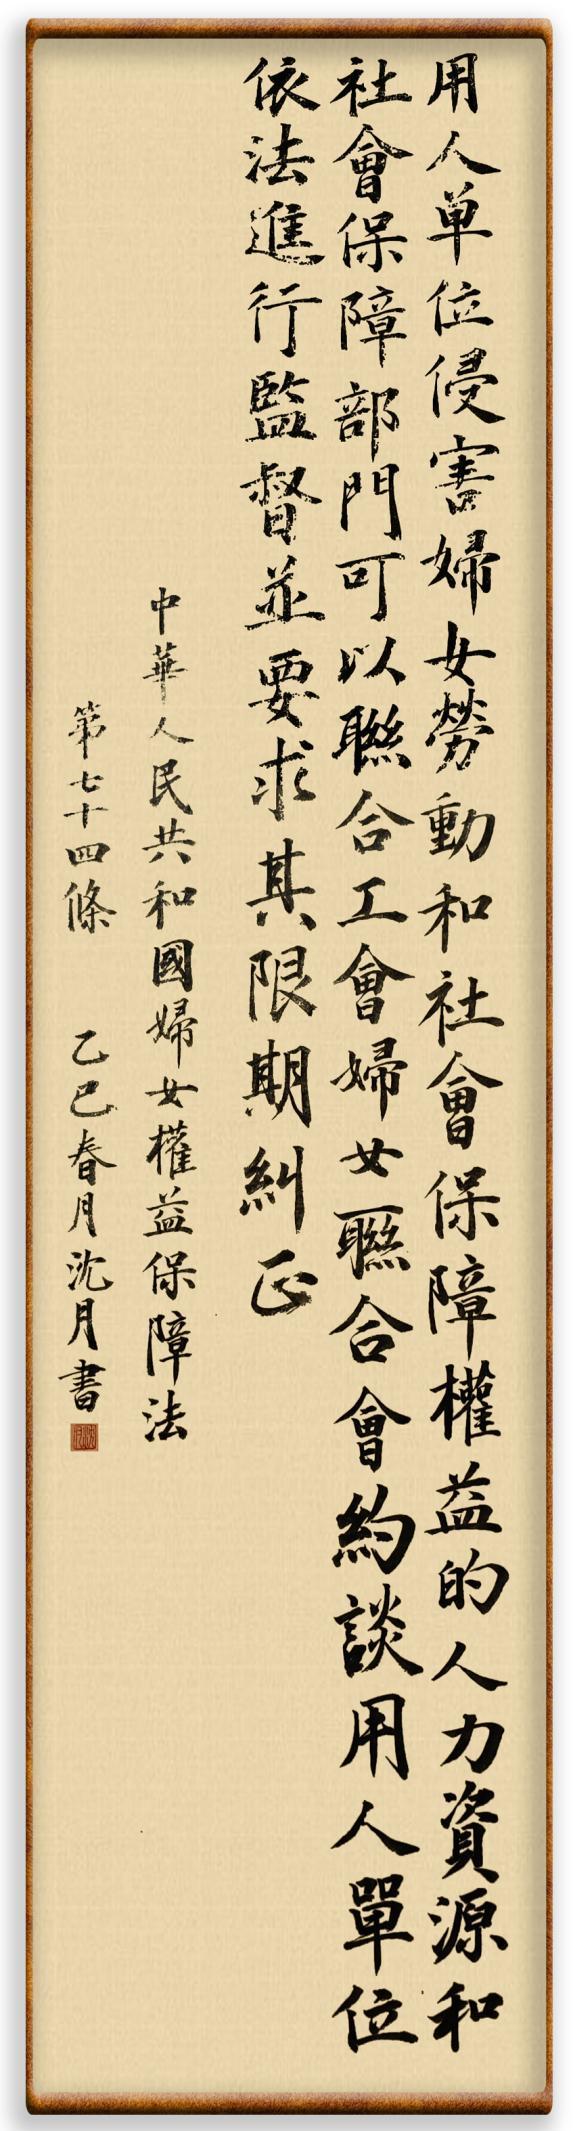 用人单位侵害婦女勞動和社會保障權益的人力資源和
社會保障部門可以聯合工會婦女聯合會約談用人單位
依法進行監督並要求其限期糾正
中華人民共和國婦女權益保障法
第七十四條 乙巳春月沈月書